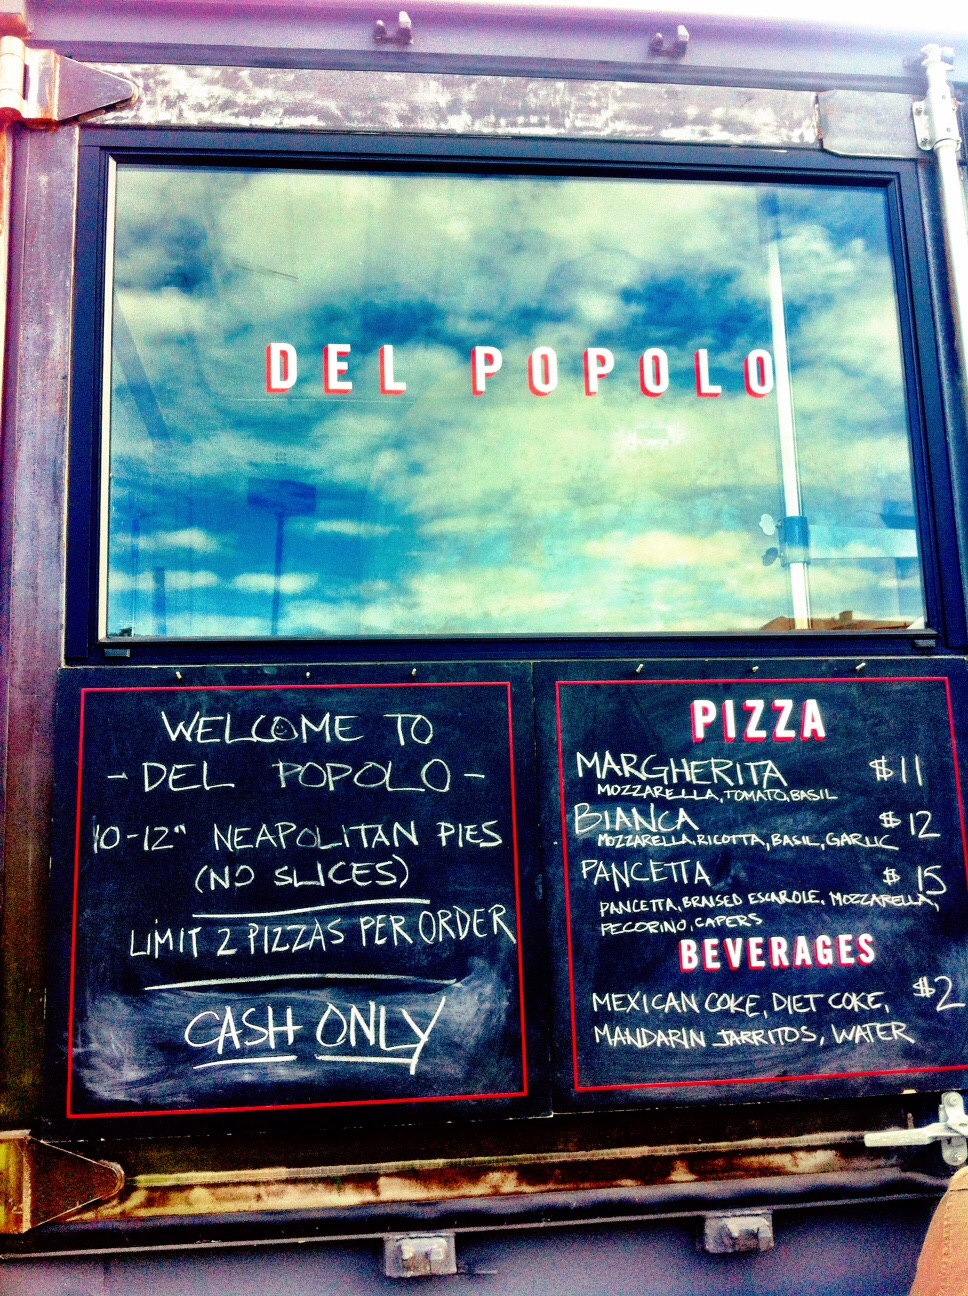 DEL POPOLO
WELCOME TO
- DEL POPOLO -
10-12" NEAPOLITAN PIES
(NO SLICES)
LIMIT 2 PIZZAS PER ORDER
CASH ONLY
PIZZA
MARGHERITA $11
MOZZARELLA, TOMATO, BASIL
BIANCA $12
MOZZARELLA, RICOTTA, BASIL, GARLIC
PANCETTA $15
PANCETTA, BRAISED ESCAROLE, MOZZARELLA,
PECORINO, CAPERS
BEVERAGES
MEXICAN COKE, DIET COKE, $2
MANDARIN JARRITOS, WATER